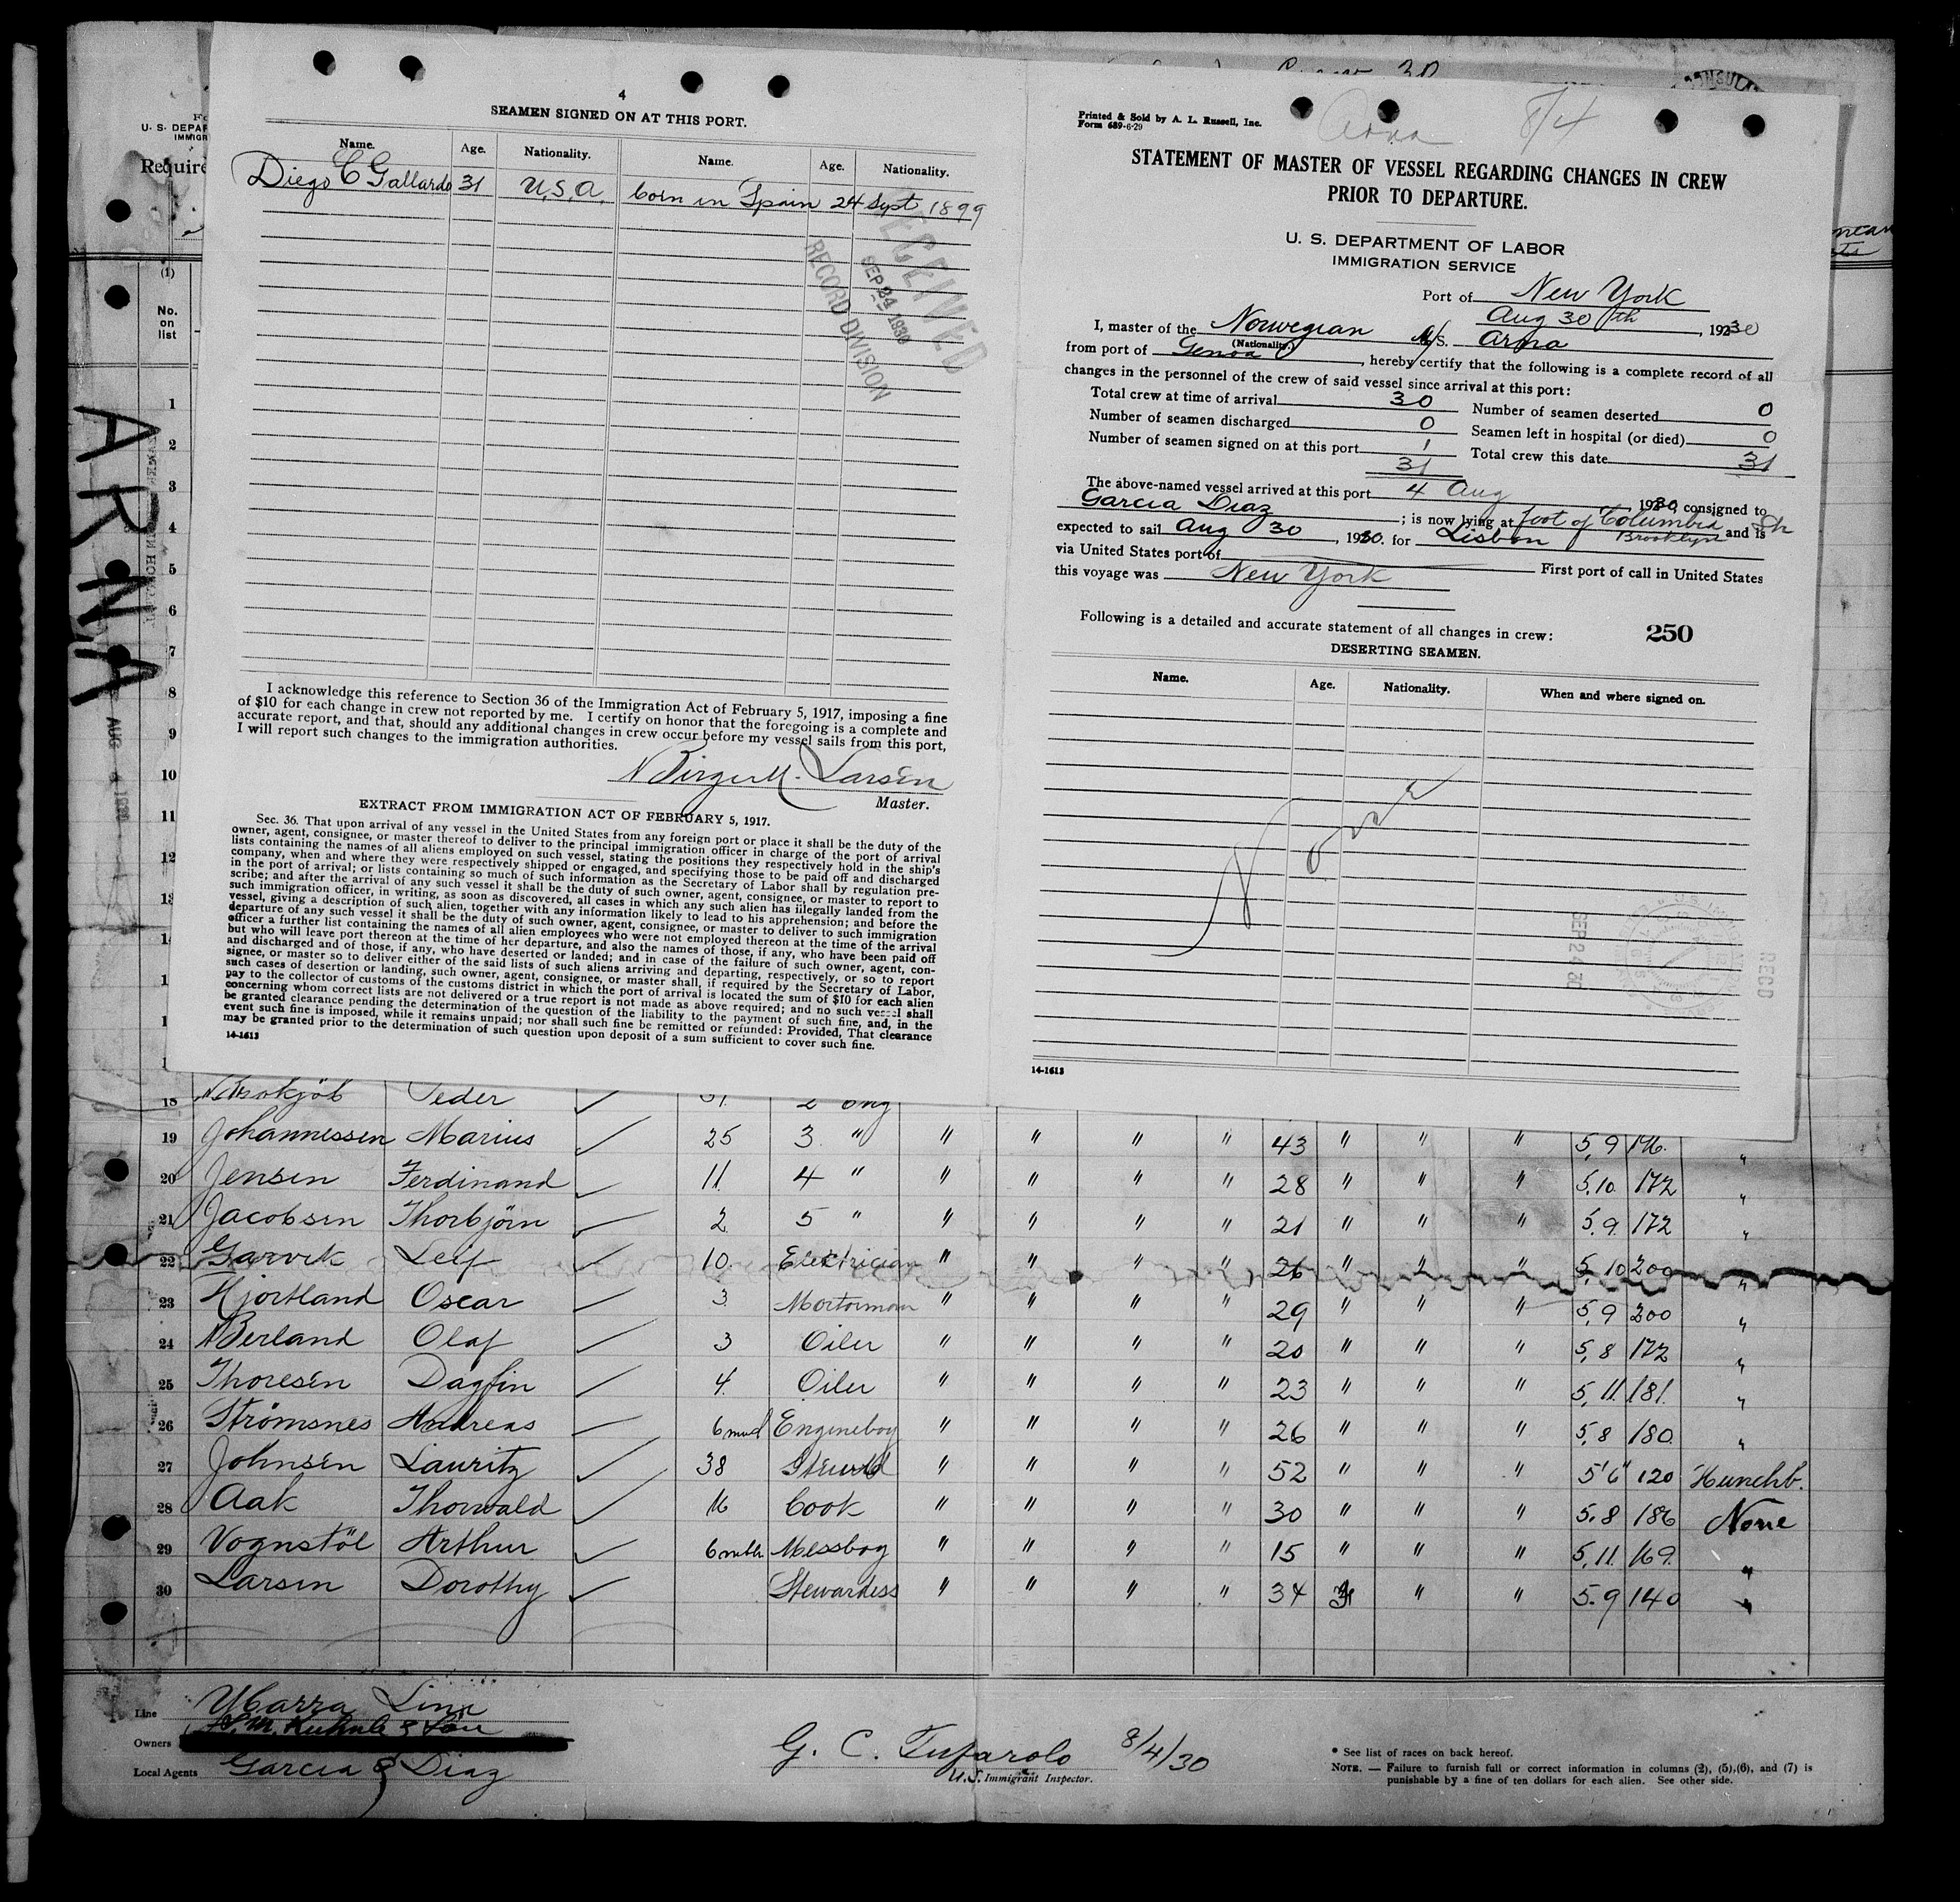 4
SEAMEN SIGNED ON AT THIS PORT.
Name. Age. Nationality. Name. Age. Nationality.
Diego C Gallardo 31 U.S.A. born in Spain 24 Sept 1899
RECEIVED
SEP 24 1930
RECORD DIVISION
I acknowledge this reference to Section 36 of the Immigration Act of February 5, 1917, imposing a fine
of $10 for each change in crew not reported by me. I certify on honor that the foregoing is a complete and
accurate report, and that, should any additional changes in crew occur before my vessel sails from this port,
I will report such changes to the immigration authorities.
Larsen
Master.
EXTRACT FROM IMMIGRATION ACT OF FEBRUARY 5, 1917.
Sec. 36. That upon arrival of any vessel in the United States from any foreign port or place it shall be the duty of the
owner, agent, consignee, or master thereof to deliver to the principal immigration officer in charge of the port of arrival
lists containing the names of all aliens employed on such vessel, stating the positions they respectively hold in the ship's
company, when and where they were respectively shipped or engaged, and specifying those to be paid off and discharged
in the port of arrival; or lists containing so much of such information as the Secretary of Labor shall by regulation pre-
scribe; and after the arrival of any such vessel it shall be the duty of such owner, agent, consignee, or master to report to
such immigration officer, in writing, as soon as discovered, all cases in which any such alien has illegally landed from the
vessel, giving a description of such alien, together with any information likely to lead to his apprehension; and before the
departure of any such vessel it shall be the duty of such owner, agent, consignee, or master to deliver to such immigration
officer a further list containing the names of all alien employees who were not employed thereon at the time of the arrival
but who will leave port thereon at the time of her departure, and also the names of those, if any, who have been paid off
and discharged and of those, if any, who have deserted or landed; and in case of the failure of such owner, agent, con-
signee, or master so to deliver either of the said lists of such aliens arriving and departing, respectively, or so to report
such cases of desertion or landing, such owner, agent, consignee, or master shall, if required by the Secretary of Labor,
pay to the collector of customs of the customs district in which the port of arrival is located the sum of $10 for each alien
concerning whom correct lists are not delivered or a true report is not made as above required; and no such vessel shall
be granted clearance pending the determination of the question of the liability to the payment of such fine, and, in the
event such fine is imposed, while it remains unpaid; nor shall such fine be remitted or refunded: Provided, That clearance
may be granted prior to the determination of such question upon deposit of a sum sufficient to cover such fine.
14-1613
Printed & Sold by A. L. Russell, Inc.
Form 689-6-29
Arna 8/4
STATEMENT OF MASTER OF VESSEL REGARDING CHANGES IN CREW
PRIOR TO DEPARTURE.
U. S. DEPARTMENT OF LABOR
IMMIGRATION SERVICE
Port of New York
Aug 30th, 1930
I, master of the Norwegian M/S. Arna
(Nationality.)
from port of Genoa, hereby certify that the following is a complete record of all
changes in the personnel of the crew of said vessel since arrival at this port:
Total crew at time of arrival 30 Number of seamen deserted 0
Number of seamen discharged 0 Seamen left in hospital (or died) 0
Number of seamen signed on at this port 1 Total crew this date 31
31
The above-named vessel arrived at this port 4 Aug 1930, consigned to
Garcia Diaz; is now lying at foot of Columbia Sh Brooklyn and is
expected to sail Aug 30, 1930. for Lisbon
via United States port of First port of call in United States
this voyage was New York
Following is a detailed and accurate statement of all changes in crew: 250
DESERTING SEAMEN.
Name. Age. Nationality. When and where signed on.
None
RECD
SEP 24 30
14-1613
U. S. DEPAR
IMMIGR
Require
(1)
No.
on
list
ARNA
AUG 4 1930
1
2
3
4
5
6
7
8
9
10
11
12
18 Peder 2 Eng
19 Johannessen Marius 25 3 " " " " " 43 " " " 5,9 176. "
20 Jensen Ferdinand 11. 4 " " " " " 28 " " " 5,10. 172 "
21 Jacobsen Thorbjörn 2 5 " " " " " 21 " " " 5.9. 172 "
22 Garvik Leif 10. Electrician " " " " 26 " " " 5,10 200 "
23 Hjortland Oscar 3. Mortorman " " " " 29 " " " 5,9 200 "
24 Berland Olaf 3 Oiler " " " " 20 " " " 5,8 172 "
25 Thoresen Dagfin 4. Oiler " " " " 23 " " " 5,11. 181. "
26 Strømsnes Andreas 6 Engineboy " " " " 26 " " " 5,8 180. "
27 Johnsen Lauritz 38 Steward " " " " 52 " " " 5'6" 120 Hunchb.
28 Aak Thorvald 16 Cook " " " " 30 " " " 5.8 186 None
29 Vognstöl Arthur 6 Messboy " " " " 15 " " " 5,11. 169. "
30 Larsen Dorothy Stewardess " " " " 34 " " 5.9 140 "
Line Ybarra Line
Owners
Local Agents Garcia & Diaz
G. C. Tufarolo 8/4/30
U.S. Immigrant Inspector.
* See list of races on back hereof.
NOTE. — Failure to furnish full or correct information in columns (2), (5), (6), and (7) is
punishable by a fine of ten dollars for each alien. See other side.